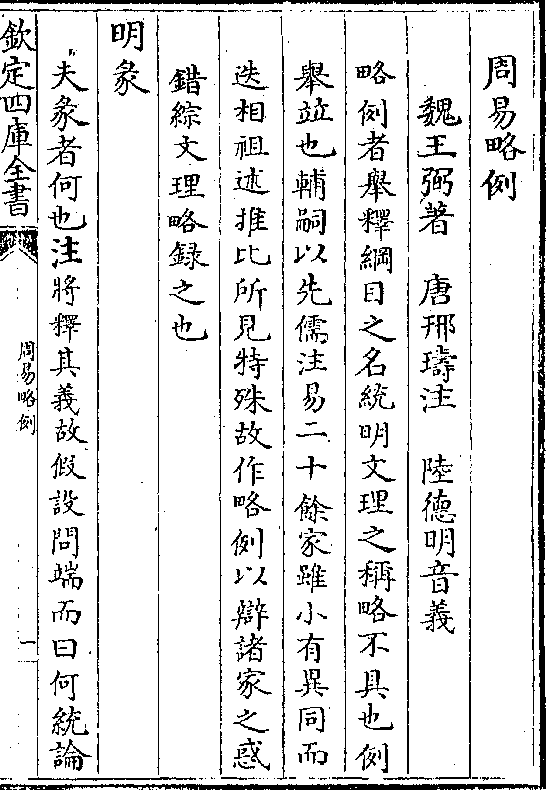 周易略例
魏王弼著　唐邢璹注　陸德明音義
略例者舉釋綱目之名統明文理之稱略不具也例
舉竝也輔嗣以先儒注易二十餘家雖小有異同而
迭相祖述推比所見特殊故作略例以辯諸家之惑
錯綜文理略録之也
明彖
夫彖者何也注將釋其義故假設問端而曰何統論
欽定四庫全書
周易略例
一